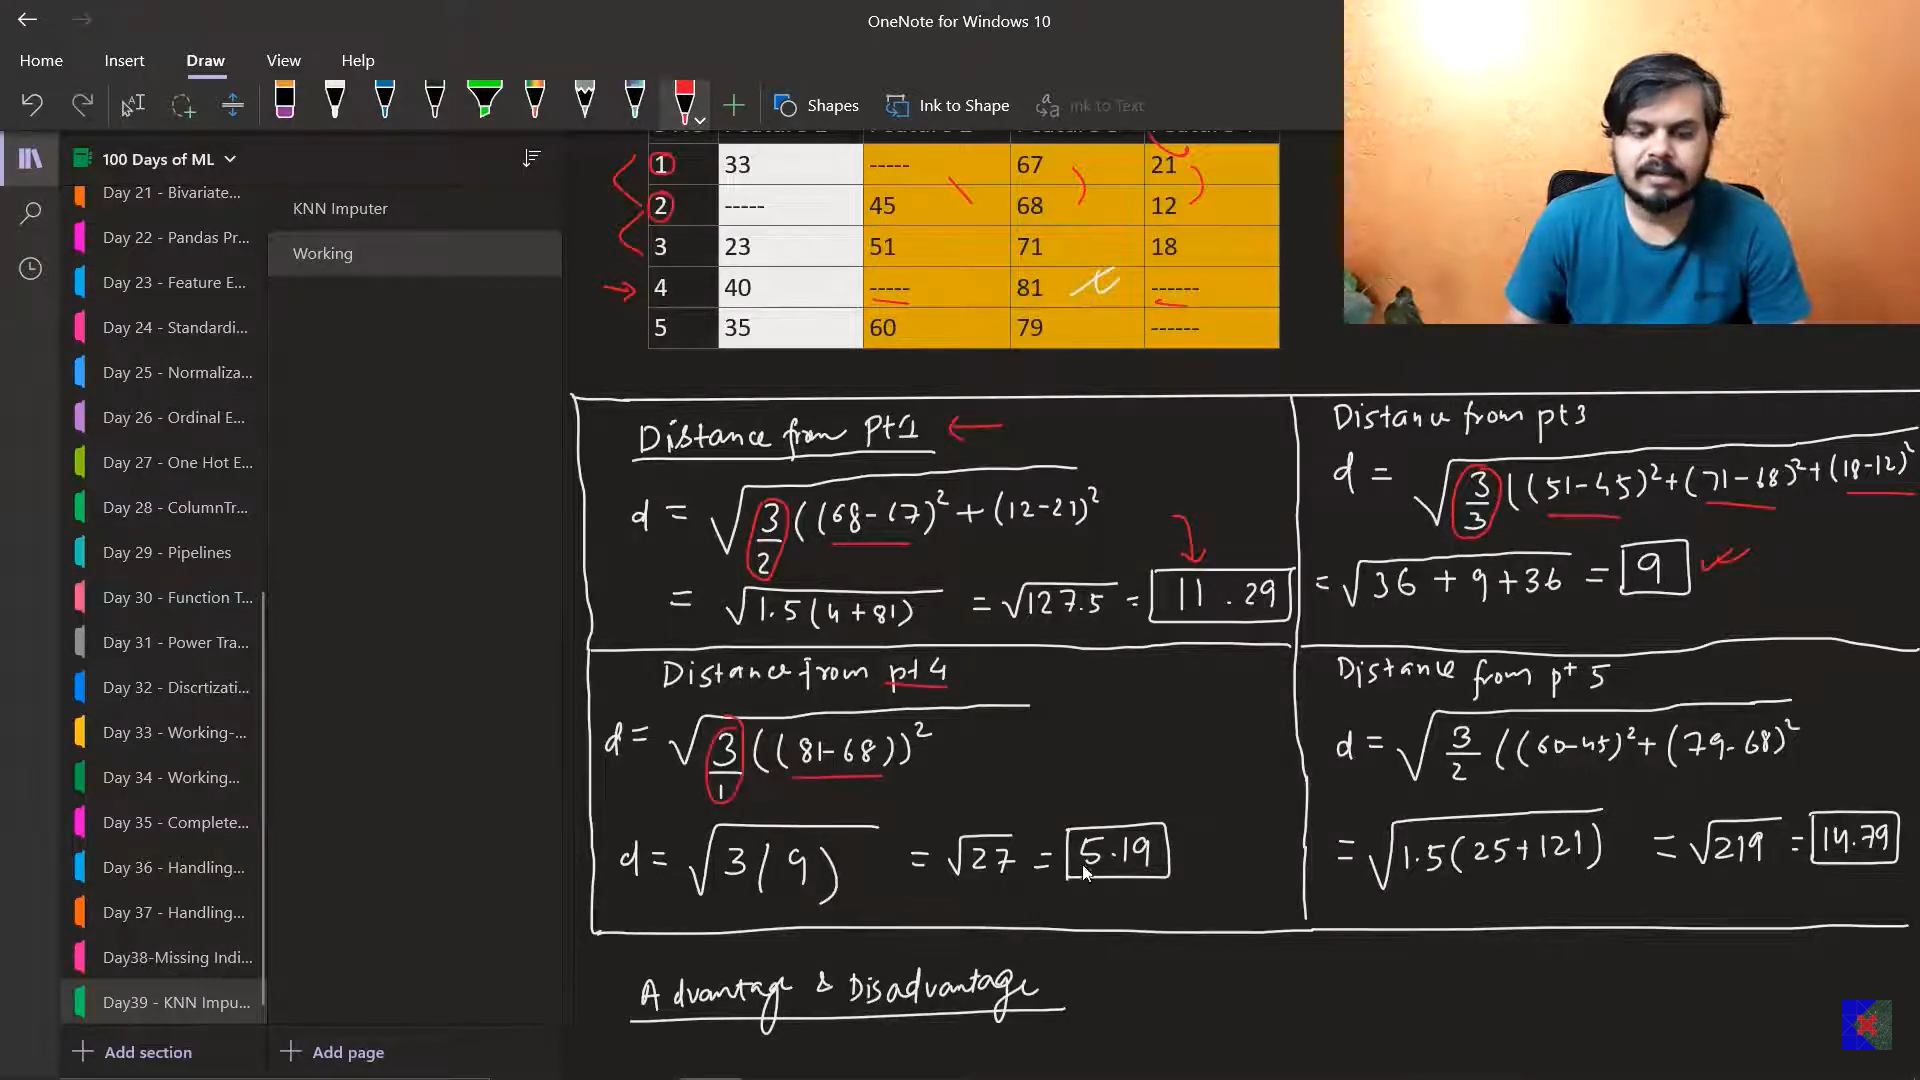 OneNote for Windows 10
Home Insert Draw View Help
Shapes Ink to Shape Ink to Text
100 Days of ML
Day 21 - Bivariate...
Day 22 - Pandas Pr...
Day 23 - Feature E...
Day 24 - Standardi...
Day 25 - Normaliza...
Day 26 - Ordinal E...
Day 27 - One Hot E...
Day 28 - ColumnTr...
Day 29 - Pipelines
Day 30 - Function T...
Day 31 - Power Tra...
Day 32 - Discrtizati...
Day 33 - Working-...
Day 34 - Working...
Day 35 - Complete...
Day 36 - Handling...
Day 37 - Handling...
Day38-Missing Indi...
Day39 - KNN Impu...
Add section
KNN Imputer
Working
Add page
1 33 ----- 67 21
2 ----- 45 68 12
3 23 51 71 18
4 40 ----- 81 ------
5 35 60 79 ------
Distance from Pt1
d = √3/2((68-67)²+(12-21)²
= √1.5(4+81) = √127.5 = 11.29
Distance from pt3
d = √3/3((51-45)²+(71-68)²+(18-12)²
= √36+9+36 = 9
Distance from pt4
d = √3/1((81-68))²
d = √3(9) = √27 = 5.19
Distance from pt 5
d = √3/2((60-45)²+(79-68)²
= √1.5(25+121) = √219 = 14.79
Advantage & Disadvantage